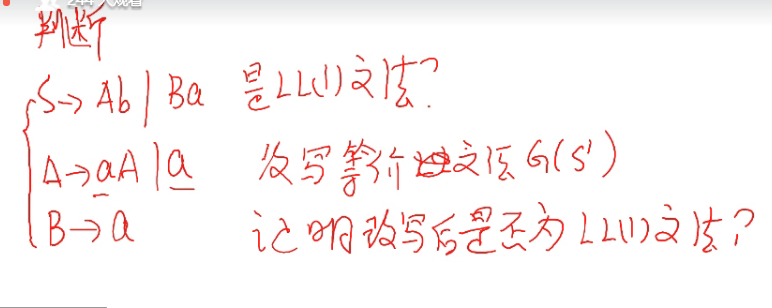 244人观看
判断
S→Ab|Ba 是LL(1)文法?
A→aA|a 改写等价文法G(S')
B→a 证明改写后是否为LL(1)文法?